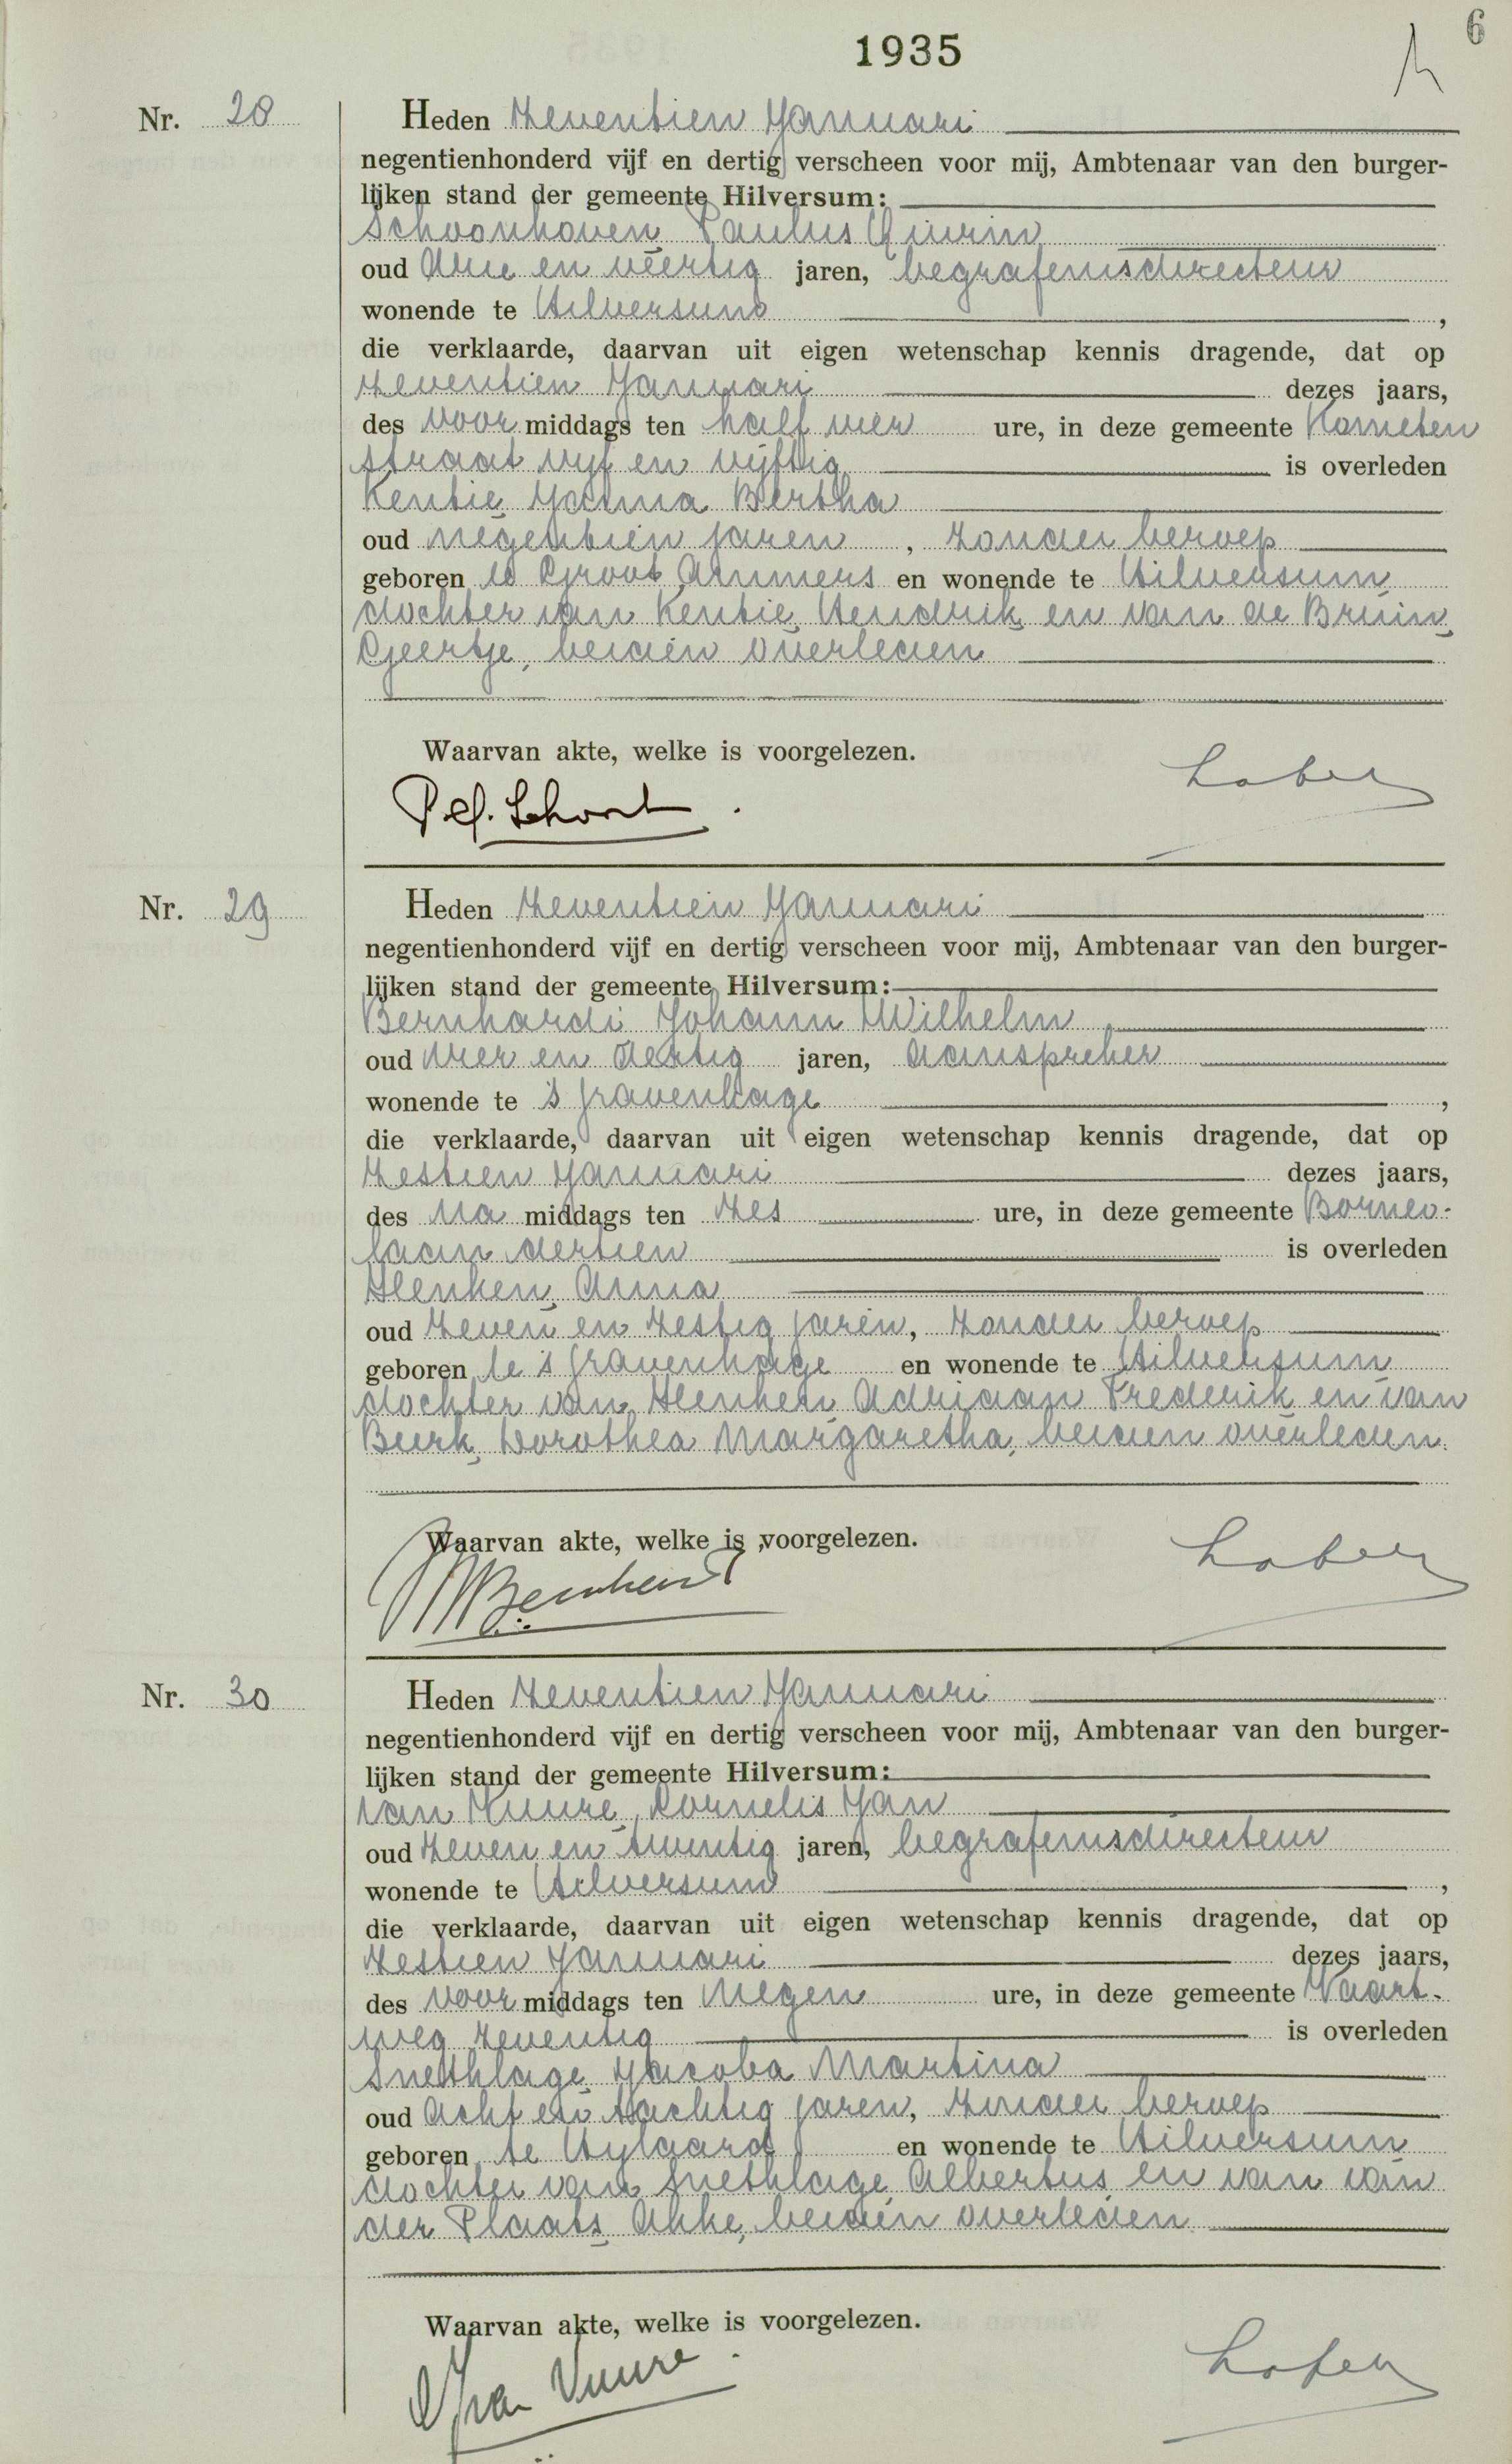 6
1935
Nr. 28
Heden Zeventien Januari
negentienhonderd vijf en dertig verscheen voor mij, Ambtenaar van den burger-
lijken stand der gemeente Hilversum:
Schoonhoven, Paulus Quirin
oud drie en veertig jaren, begrafenisdirecteur
wonende te Hilversum,
die verklaarde, daarvan uit eigen wetenschap kennis dragende, dat op
zeventien Januari dezes jaars,
des voor middags ten half vier ure, in deze gemeente Kometen
straat vijf en vijftig is overleden
Kentie, Janna Bertha
oud negentien jaren, zonder beroep
geboren te Groot Ammers en wonende te Hilversum
dochter van Kentie, Hendrik en van de Bruin,
Geertje, beiden overleden
Waarvan akte, welke is voorgelezen.
Nr. 29
Heden Zeventien Januari
negentienhonderd vijf en dertig verscheen voor mij, Ambtenaar van den burger-
lijken stand der gemeente Hilversum:
Bernhardi Johann Wilhelm
oud vier en dertig jaren, aanspreker
wonende te 's Gravenhage,
die verklaarde, daarvan uit eigen wetenschap kennis dragende, dat op
Zestien Januari dezes jaars,
des na middags ten zes ure, in deze gemeente Borneo-
laan dertien is overleden
Henken, Anna
oud zeven en zestig jaren, zonder beroep
geboren te 's Gravenhage en wonende te Hilversum
dochter van Henken Adriaan Frederik en van
Burk, Dorothea Margaretha, beiden overleden.
Waarvan akte, welke is voorgelezen.
Nr. 30
Heden Zeventien Januari
negentienhonderd vijf en dertig verscheen voor mij, Ambtenaar van den burger-
lijken stand der gemeente Hilversum:
van Vuure, Cornelis Jan
oud zeven en twintig jaren, begrafenisdirecteur
wonende te Hilversum,
die verklaarde, daarvan uit eigen wetenschap kennis dragende, dat op
Zestien Januari dezes jaars,
des voor middags ten negen ure, in deze gemeente Vaart-
weg zeventig is overleden
Snethlage, Jacoba Martina
oud acht en tachtig jaren, zonder beroep
geboren te Hylaard en wonende te Hilversum
dochter van Snethlage Albertus en van van
der Plaats, Akke, beiden overleden
Waarvan akte, welke is voorgelezen.
van Vuure